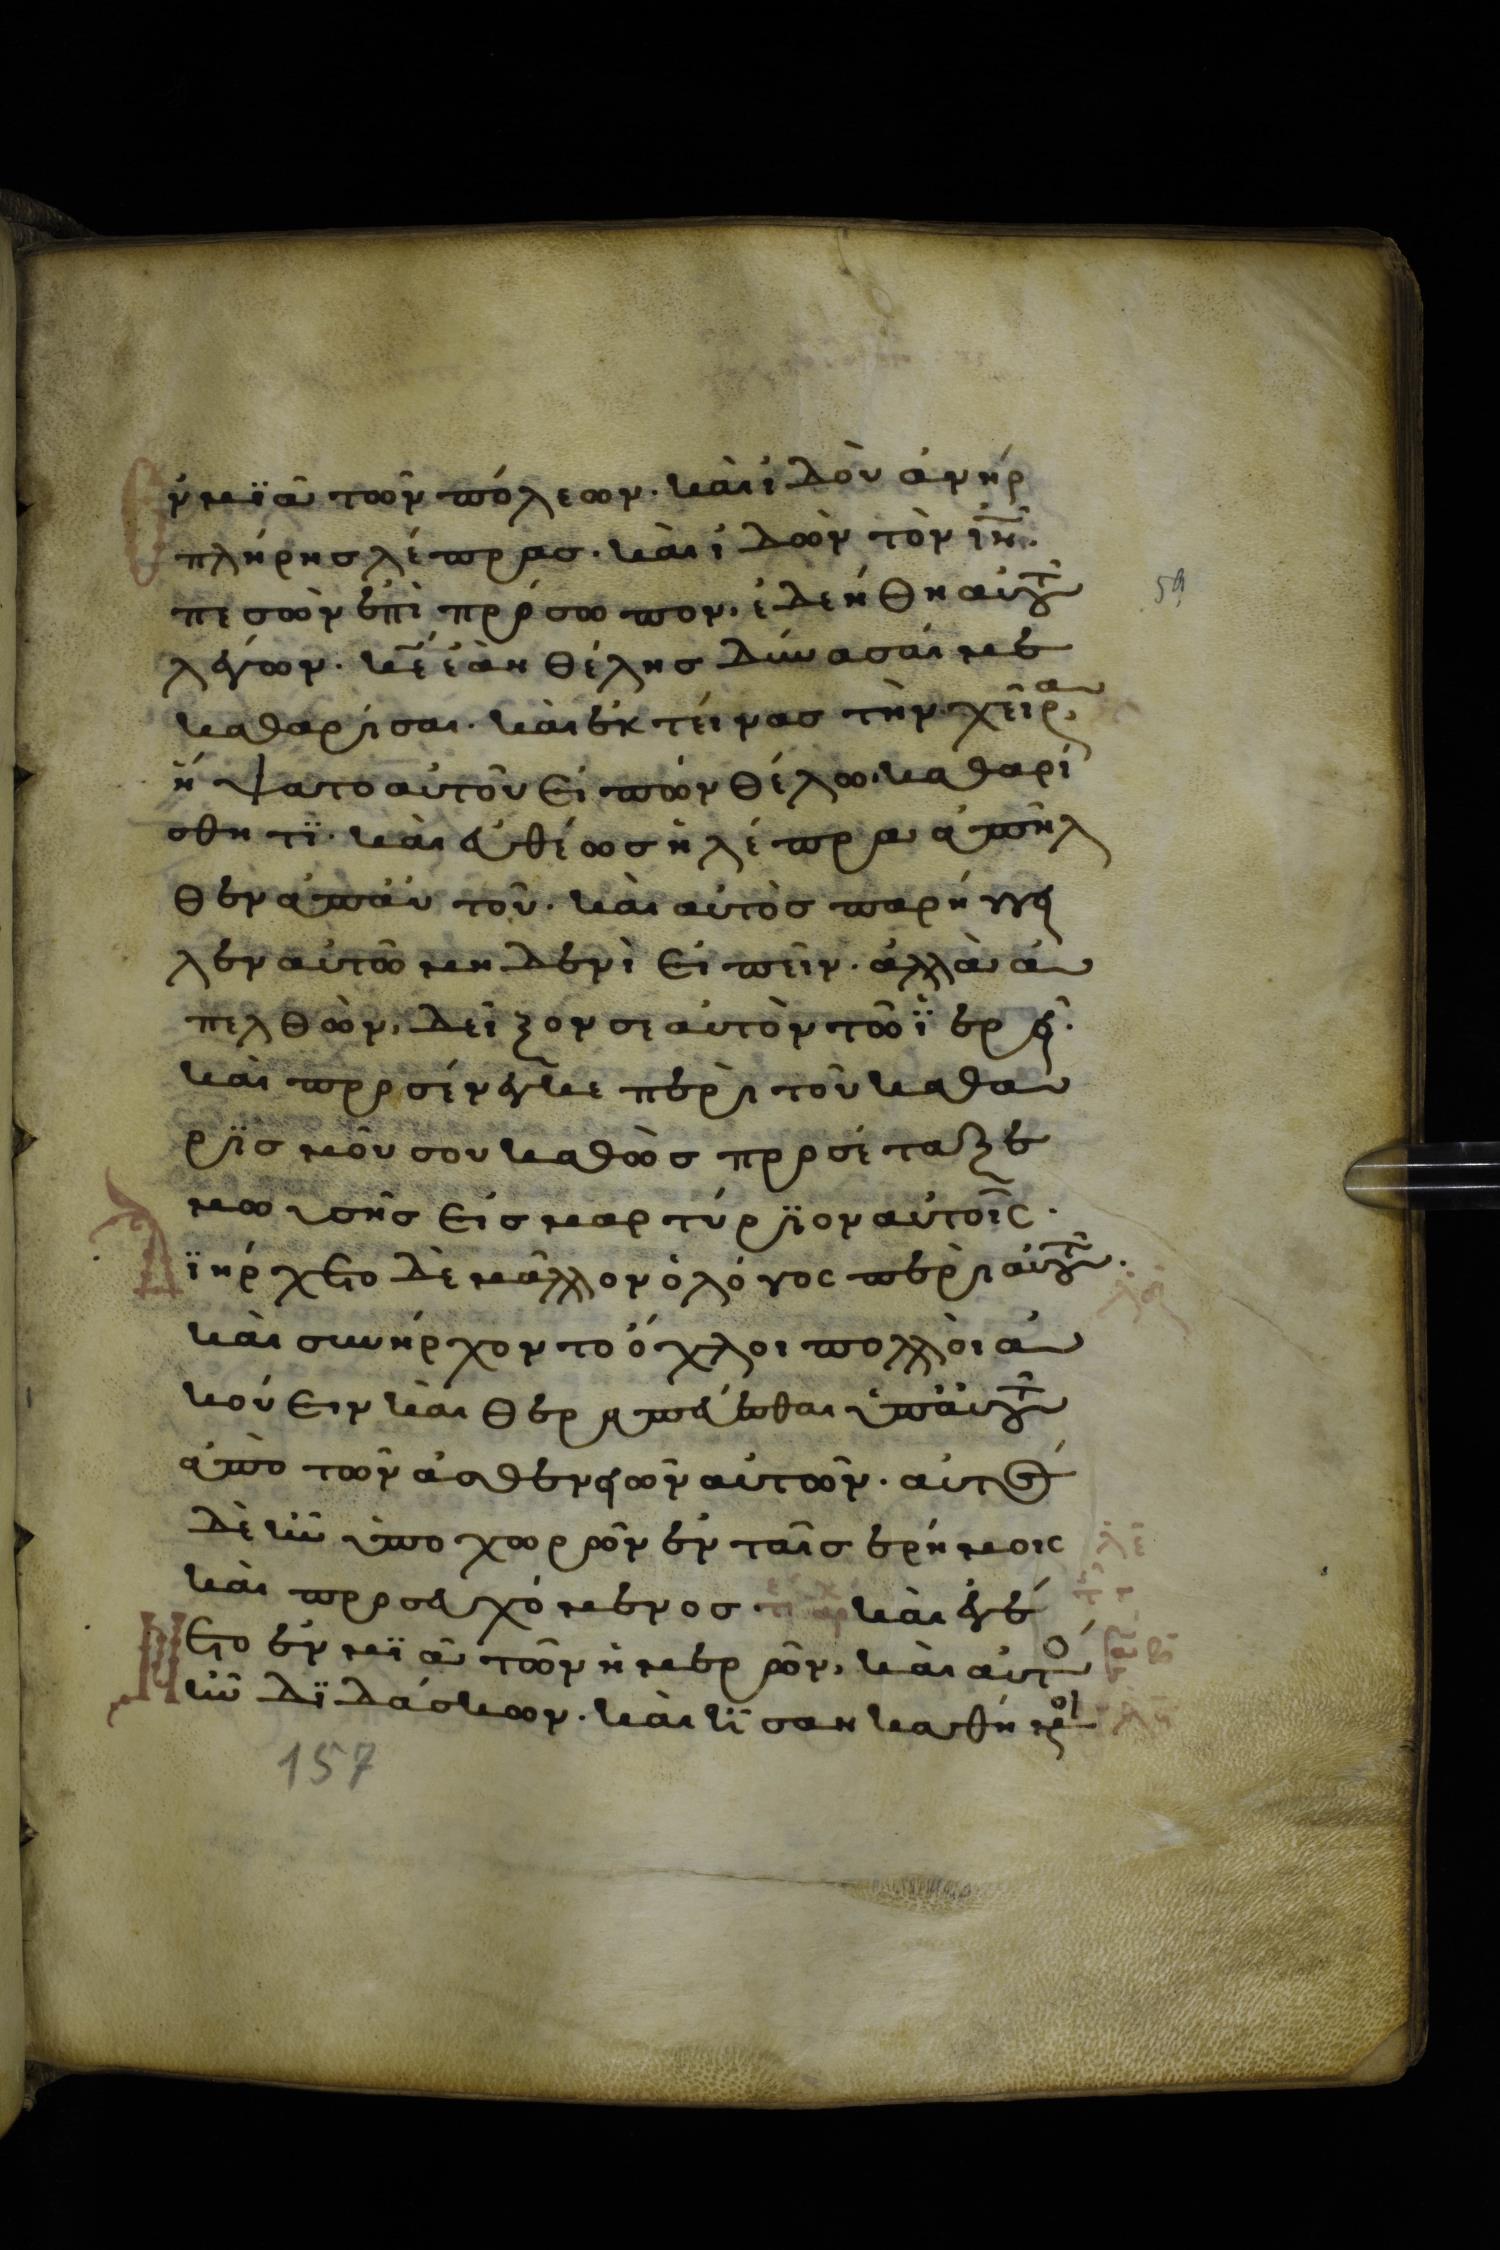 Ἐν μϊᾶ τῶν πόλεων· καὶ ἰδοὺ ἀνὴρ
πλήρης λέπρας· καὶ ἰδὼν τὸν ἰν̅·
πεσὼν ἐπὶ πρόσωπον, ἐδεήθη αὐτοῦ
λέγων· κε̅ ἐὰν θέλης δύνασαί με
καθαρίσαι· καὶ ἐκτείνας τὴν χεῖρα,
ἥψατο αὐτοῦ εἰπὼν θέλω, καθαρί
σθητϊ· καὶ εὐθέως ἡ λέπρα ἀπῆλ
θεν ἀπ' αὐτοῦ· καὶ αὐτὸς παρήγγει
λεν αὐτῶ μηδενὶ εἰπεῖν· ἀλλὰ ἀ
πελθὼν, δεῖξον σεαυτὸν τῶ ϊερεῖ·
καὶ προσένεγκε περὶ τοῦ καθα
ρϊσμοῦ σου καθὼς προσέταξε
μωυσῆς εἰς μαρτύρϊον αὐτοῖς·
Δϊήρχετο δὲ μᾶλλον ὁ λόγος περὶ αὐτοῦ·
καὶ συνήρχοντο ὄχλοι πολλοὶ ἀ
κούειν καὶ θεραπεύεσθαι ὑπ' αὐτοῦ
ἀπὸ τῶν ἀσθενειῶν αὐτῶν· αὐτὸς
δὲ ἦν ὑποχωρῶν ἐν ταῖς ἐρήμοις
καὶ προσευχόμενος· καὶ ἐγέ
Νετο ἐν μϊᾶ τῶν ἡμερῶν, καὶ αὐτὸ
ἦν δϊδάσκων· καὶ ἦσαν καθήμενοι
157
59